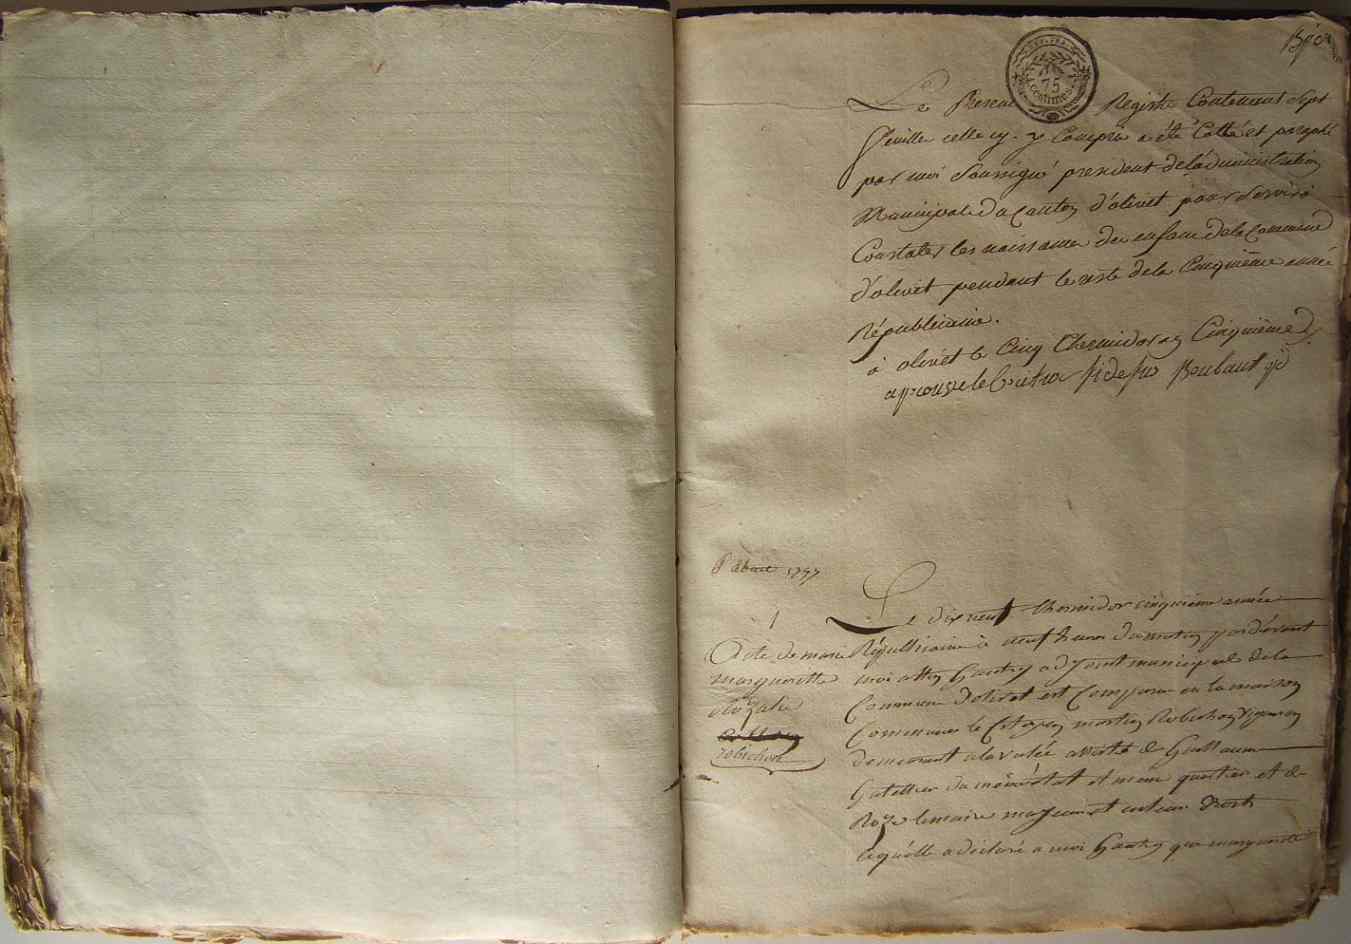 75
Centimes
Le Present Registre Contenant Sept
feuilles celle cy y Compris a été Cotté et paraphé
par moi Soussigné president de l'administration
Municipale du Canton d'olivet pour Servir a
Constater les naissances des enfans de la Commune
d'olivet pendant le reste de la Cinquième année
Républicaine.
a olivet le Cinq Thermidor an Cinquième
approuvé le Boubaut
8 aout 1797
1
Acte de marie
marguerite
Rozalie
robichon
Le dix neuf thermidor cinquieme année
Républicaine à neuf heures du matin pardevant
moi Gautry adjoint municipal de la
Commune Dolivet est Comparu en la maison
Commune le Citoyen martin Robichon vigneron
demeurant a la valée assisté de Guillaume
du même état et meme quartier et de
Roze lemaire majeurs et
laquelle a déclaré a moi Gautry que marguerite